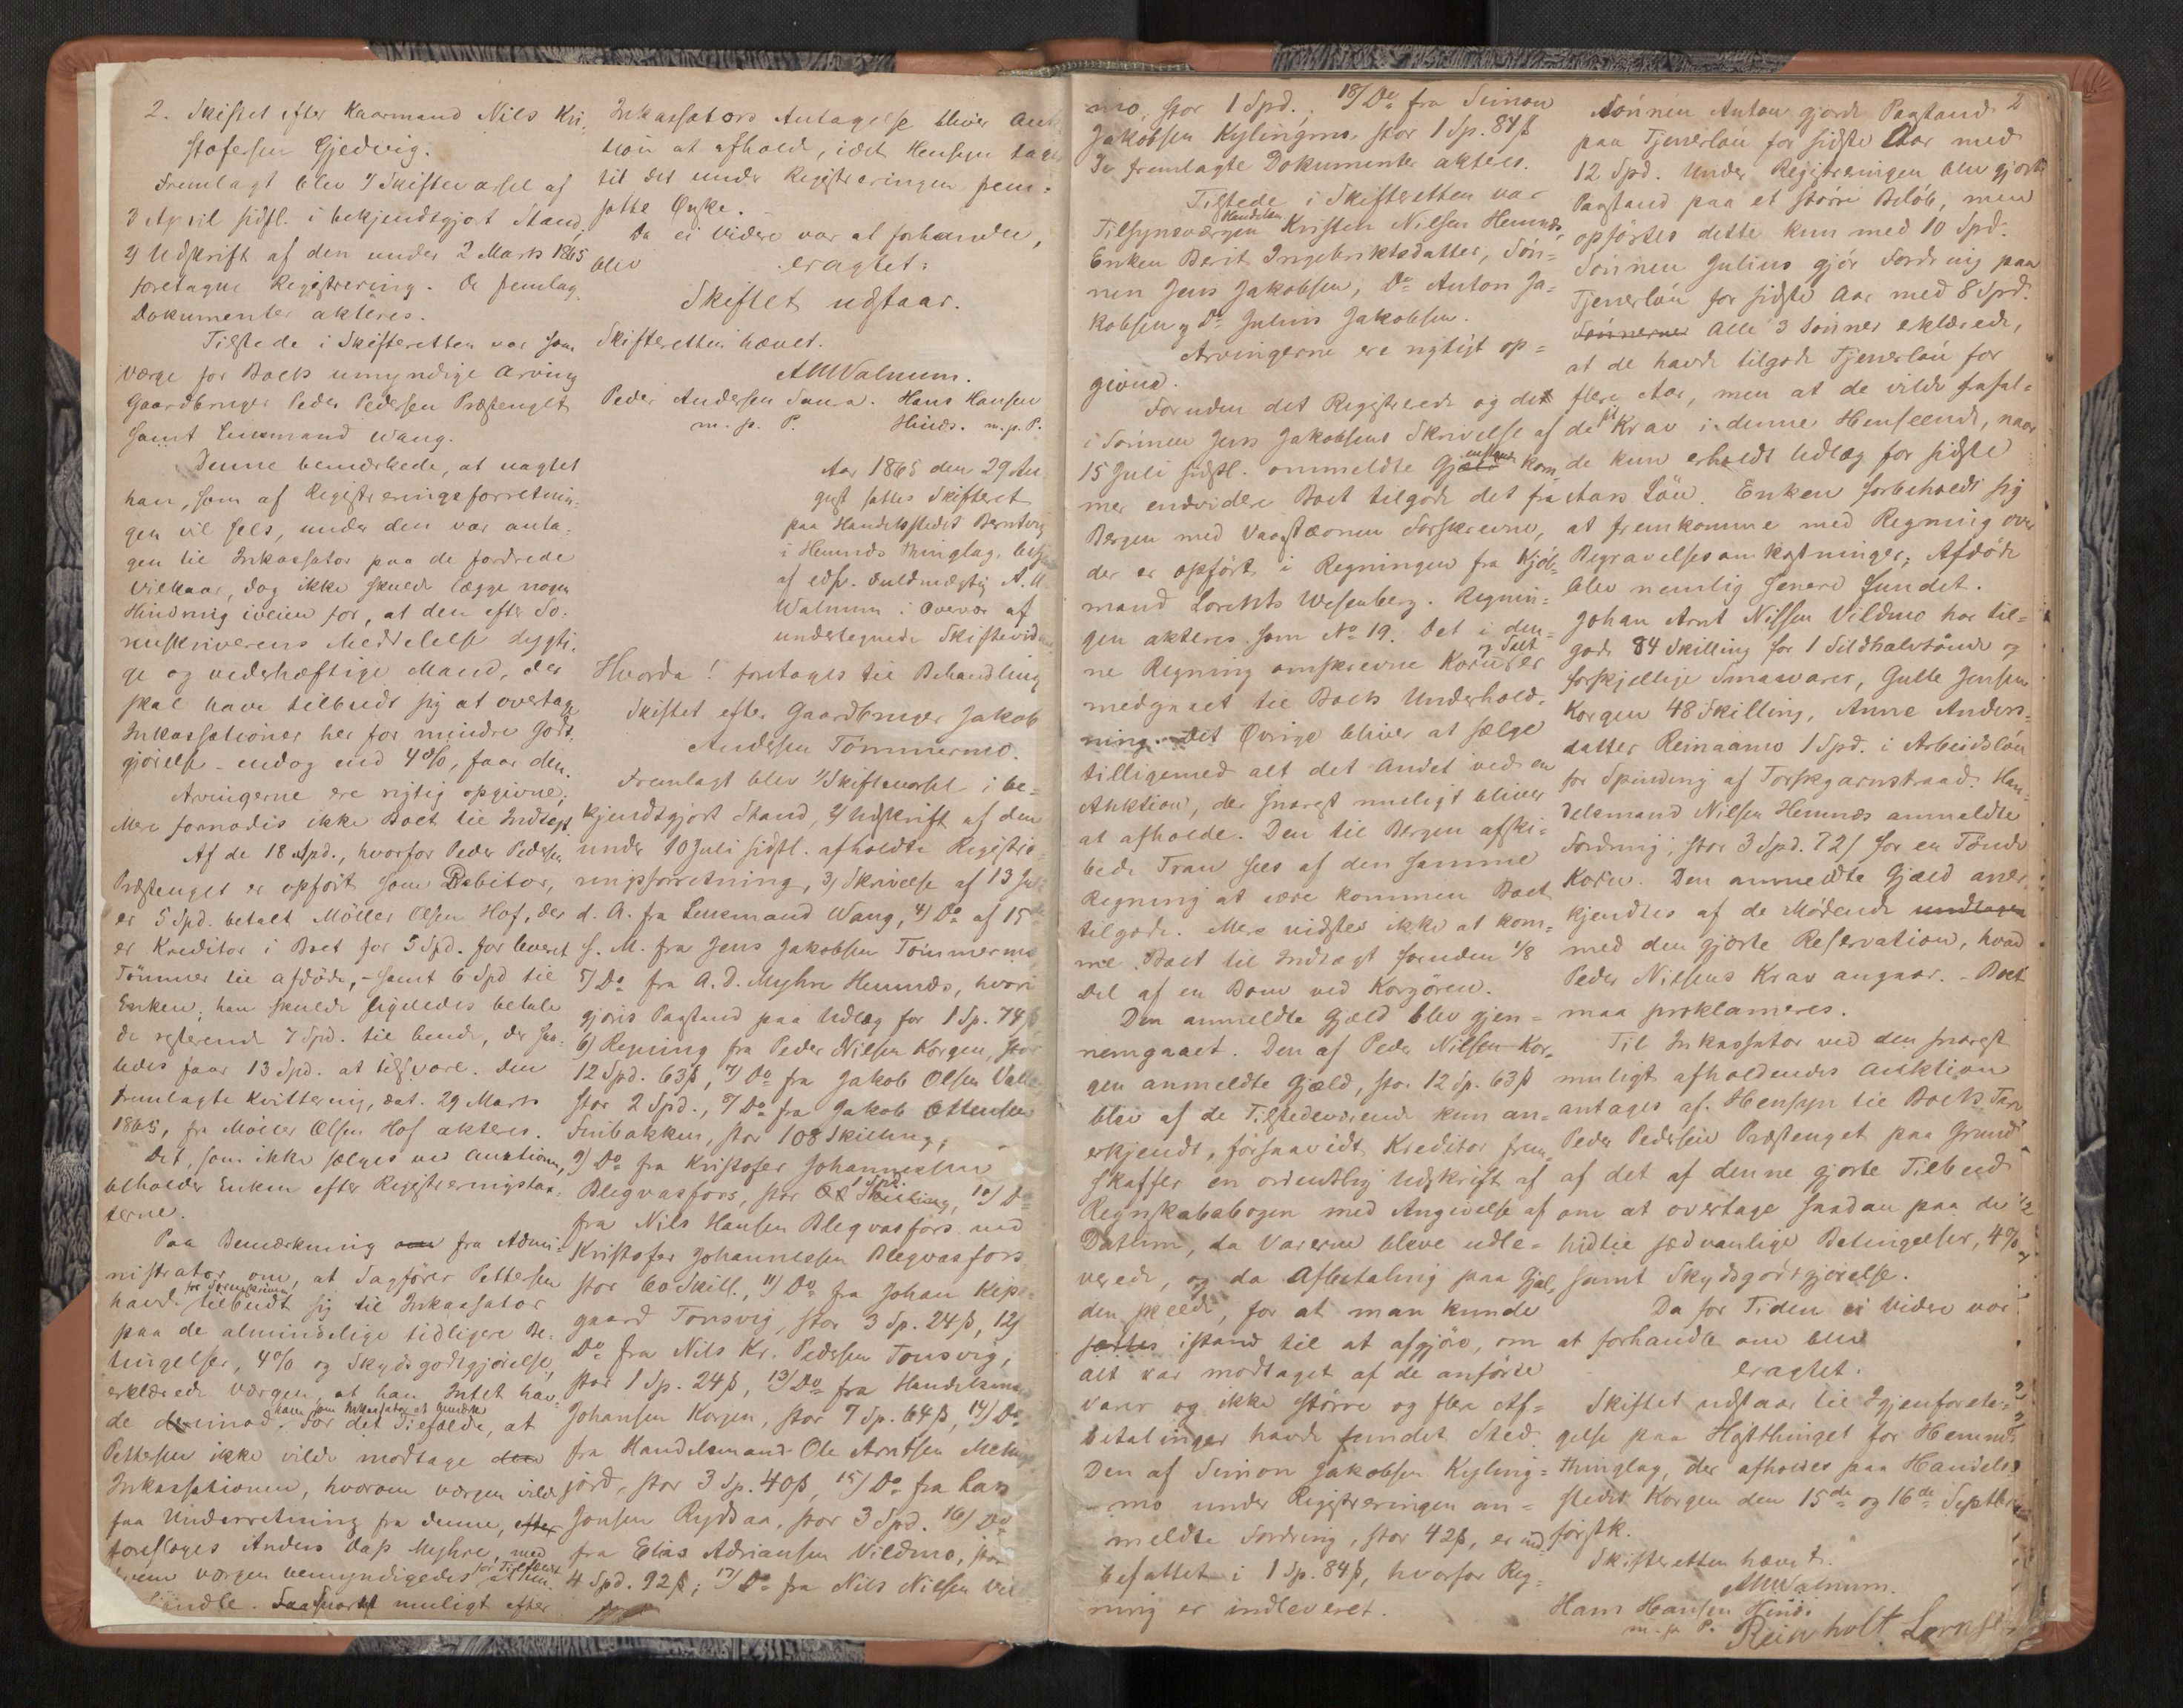 2. Skiftet efter Kaarmand Nils Kri-
stofersen Gjedvig.
Fremlagt blev 1/ Skiftevarsel af
3 April sidstl. i bekjendtgjort Stand,
2/ Udskrift af den under 2 Marts 1865
foretagne Registrering. De fremlag.
Dokumenter akteres.
Tilstede i Skifteretten var som
Værge for Boets umyndige Arving
Gaardbruger Peder Pedersen Præstenget
samt Lensmand Wang.
Denne bemærkede, at uagtet
han, som af Registreringsforretnin-
gen vil sees, under den var anta-
gen til Inkassator paa de fordrede
Vilkaar, dog ikke skulde lægge nogen
Hindring iveien for, at den efter So-
renskriverens Meddelelse dygti-
ge og vederhæftige Mand, der
skal have tilbudt sig at overtage
Inkassationer her for mindre Godt-
gjørelse endog end 4 %, faar den.
Arvingerne ere rigtig opgivne;
Mere formodes ikke Boet til Indtægt.
Af de 18 Spd., hvorfor Peder Pedersen
Præstenget er opført som Debitor,
er 5 Spd. betalt Möller Olsen Hof, der
er Kreditor i Boet for 5 Spd. for leveret
Tømmer til afdøde, - samt 6 Spd til
Enken; han skulde ligeledes betale
de resterende 7 Spd. til hende, der saa-
ledes faar 13 Spd. at tilsvare. Den
fremlagte Kvittering, dat. 29 Marts
1865, fra Möller Olsen Hof akteres.
Det, som ikke sælges ved Auktionen,
beholder Enken efter Registreringstax-
terne.
Paa Bemærkning om fra Admi-
nistrator om, at Sagfører Pettersen
for Sorenskriveren
havde tilbudt sig til Inkassator
paa de almindelige tidligere Be-
tingelser, 4 % og Skydsgodtgjørelse,
erklærede Værgen, at han Intet hav-
ham som Inkassator at benytte
de derimod. For det Tilfælde, at
Pettersen ikke vilde modtage den
Inkassationen, hvorom værgen vilde
faa Underretning fra denne, efter
foresloges Anders Dass Myhre, med
for Tilfældet
hvem værgen bemyndigedes at un-
handle. Saasnart muligt efter
Inkassators Antagelse bliver Auk-
tion at afholde, idet Hensyn tages
til det under Registreringen frem-
satte Ønske.
Da ei Videre var at forhandle,
blev eragtet:
Skiftet udstaar.
Skifteretten hævet.
AMWalnum.
Peder Andersen Sana. Hans Hansen
m. p. P. Hinds. m. p. P.
Aar 1865 den 29 Au-
gust sattes Skifteret
paa Handelsstedet Berntvig
i Hemnds Thinglag, betjent
af edsv. Fuldmægtig A. M
Walnum i Overvær af
undertegnede Skiftevidner
Hvorda! foretages til Behandling
Skiftet efter Gaardbruger Jakob
Andersen Tömmermo.
Fremlagt blev 1/ Skiftevarsel i be-
kjendtgjort Stand, 2/ Udskrift af den
under 10 Juli sidstl. afholdte Registre-
ringsforretning, 3/ Skrivelse af 13 Juli
d. A. fra Lensmand Wang, 4/ Do af 15de
s. M. fra Jens Jakobsen Tömmermo,
5/ Do fra A. D. Myhre Hemnds, hvori
gjøres Paastand paa Udlæg for 1 Sp. 74 ß,
6/ Regning fra Peder Nilsen Korgen, stor
12 Spd. 63 ß, 7/ Do fra Jakob Olsen Valla
stor 2 Spd., 8/ Do fra Jakob Ottensen
Finbakken, stor 108 Skilling,
9/ Do fra Kristofer Johannessen
1 Spd
Blegvasfors, stor Skilling, 10/ Do
fra Nils Hansen Blegvasfors ved
Kristofer Johannessen Blegvasfors
stor 60 Skill., 11/ Do fra Johan Kips-
gaard Tonsvig, stor 3 Sp. 24 ß, 12/
Do fra Nils Kr. Pedersen Tonsvig,
stor 1 Sp. 24 ß, 13/ Do fra Handelsmand
Johansen Korgen, stor 7 Sp. 64 ß, 14/ Do
fra Handelsmand Ole Arntsen
jord, stor 3 Sp. 40 ß, 15/ Do fra Lars
Jonsen Rydsaa, stor 3 Spd. 16/ Do
fra Elias Adriansen Vildmo, stor
4 Spd. 92 ß; 17/ Do fra Nils Nilsen Vild-
mo, stor 1 Spd.; 18/ Do fra Simon
Jakobsen Kylingmo, stor 1 Sp. 84 ß
De fremlagte Dokumenter akteres.
Tilstede i Skifteretten var
Handelsm.
Tilsynsværgen Kristen Nilsen Hemnds,
Enken Berit Ingebriktsdatter, Søn-
nen Jens Jakobsen, Do Anton Ja-
kobsen og Do Julius Jakobsen.
Arvingerne ere rigtigt op-
givne.
Foruden det Registrerede og det
i Sønnen Jens Jakobsens Skrivelse af
15 Juli sidstl. ommeldte Gjæld kom-
mer endvidere Boet tilgode det fra
Bergen med Vaarstævnen Forskrevne,
der er opført i Regningen fra Kjøb-
mand Lorentz Wesenberg. Regnin-
gen akteres som No 19. Det i den-
og Salt
ne Regning omskrevne Korn er
medgaaet til Boets Underhold-
ning. Det Øvrige bliver at sælge
tilligemed alt det Andet ved en
Auktion, der snarest muligt bliver
at afholde. Den til Bergen afski-
bede Tran sees af den samme
Regning at være kommen Boet
tilgode. Mere vidstes ikke at kom-
me Boet til Indtægt foruden 1/8
Del af en Bom ved Korgören.
Den anmeldte Gjæld blev gjen-
nemgaaet. Den af Peder Nilsen Kor-
gen anmeldte Gjæld, stor 12 Sp. 63 ß
blev af de Tilstedeværende kun an-
erkjendt, forsaavidt Kreditor frem-
skaffer en ordentlig Udskrift af
Regnskabsbogen med Angivelse af
Datum, da Varerne bleve udle-
verede, og da Afbetaling paa Gjæl-
den skede, for at man kunde
sættes istand til at afgjøre, om
alt var modtaget af de anførte
Varer og ikke større og flere Af-
betalinger havde fundet Sted.
Den af Simon Jakobsen Kyling-
mo under Registreringen an-
meldte Fordring, stor 42 ß, er ind-
befattet i 1 Sp. 84 ß, hvorfor Reg-
ning er indleveret.
2
Sønnen Anton gjorde Paastand
paa Tjenerløn for sidste Aar med
12 Spd. Under Registreringen blev gjort
Paastand paa et større Beløb, men
opførtes dette kun med 10 Spd.
Sønnen Julius gjør Fordring paa
Tjenerløn for sidste Aar med 8 Spd.
Sønnerne Alle 3 Sønner erklærede,
at de havde tilgode Tjenerløn for
flere Aar, men at de vilde frafal-
de Krav i denne Henseende, naar
de kun erholdt Udlæg for sidste
Aars Løn. Enken forbeholdt sig
at fremkomme med Regning over
Begravelsesomkostninger; Afdøde
blev nemlig senere fundet.
Johan Arnt Nilsen Vildmo har til-
gode 84 Skilling for 1 Sildhalvtønde og
forskjellige Smaavarer, Gulle Jensen
Korgen 48 Skilling, Anne Anders-
datter Reinaamo 1 Spd. i Arbeidsløn
for Spinding af Torskgarnstraad. Han-
delsmand Nilsen Hemnds anmeldte
Fordring, stor 3 Spd. 72 ß for en Tønde
Korn. Den anmeldte Gjæld aner-
kjendtes af de Mødende undtagen
med den gjorte Reservation, hvad
Peder Nilsens Krav angaar. - Boet
maa proklameres.
Til Inkassator ved den snarest
muligt afholdendes Auktion
antages af Hensyn til Boets Tarv
Peder Pedersen Præstenget paa Grund
af det af denne gjorte Tilbud
om at overtage saadan paa de
hidtil sædvanlige Betingelser, 4 %
samt Skydsgodtgjørelse.
Da for Tiden ei Videre var
at forhandle om blev
eragtet.
Skiftet udstaar til Igjenforeta-
gelse paa Høstthinget for Hemnds
Thinglag, der afholdes paa Handels-
stedet Korgen den 15de og 16de Septbr
førstk.
Skifteretten hævet.
AMWalnum.
Hans Hansen Hinds.
m. p. P. Reinholt